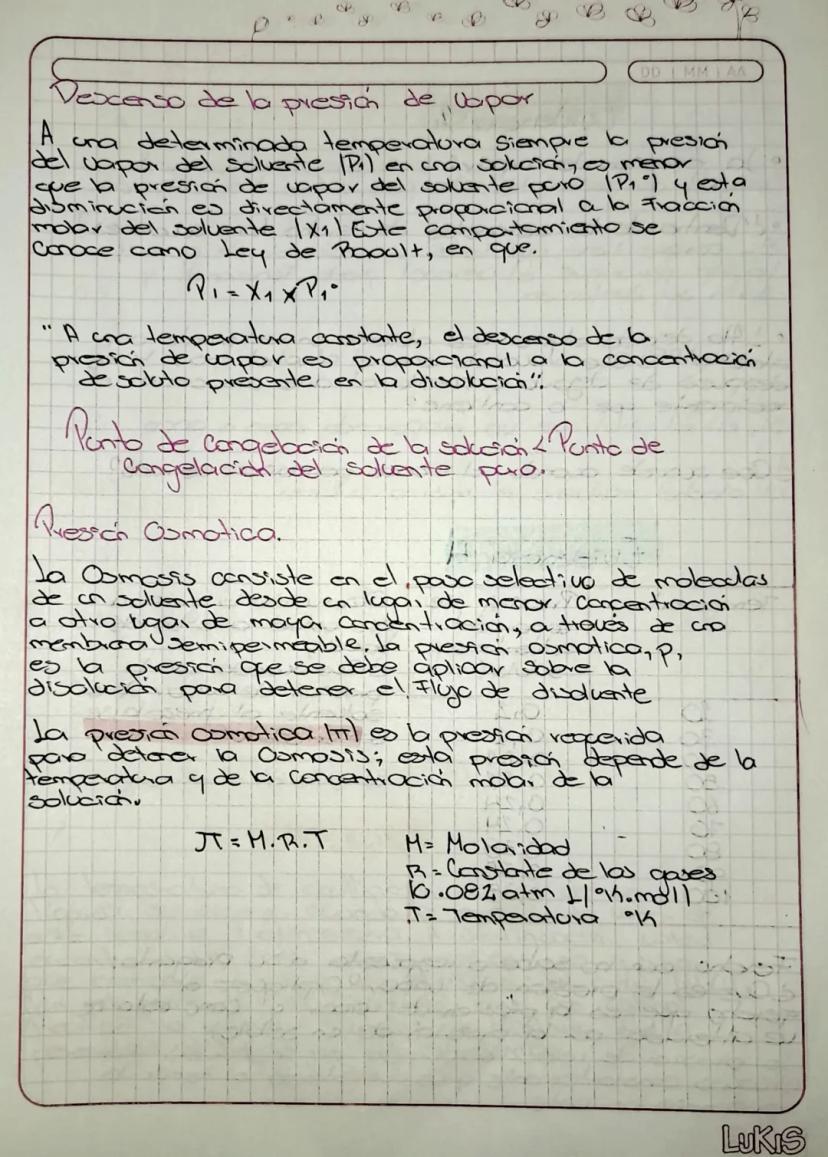 DD | MM | AA
Descenso de la presión de vapor
A una determinada temperatura siempre la presión
del vapor del solvente (P1) en una solución, es menor
que la presión de vapor del solvente puro (P1°) y esta
disminución es directamente proporcional a la Fracción
molar del solvente (X1) Este comportamiento se
conoce como Ley de Raoult, en que.
P1 = X1 x P1°
"A una temperatura constante, el descenso de la
presión de vapor es proporcional a la concentración
de soluto presente en la disolución".
Punto de congelación de la solución < Punto de
Congelación del solvente puro.
Presión Osmotica.
La Osmosis consiste en el paso selectivo de moleculas
de un solvente desde un lugar de menor concentración
a otro lugar de mayor concentración, a través de una
membrana semipermeable. La presión osmotica, p,
es la presión que se debe aplicar sobre la
disolución para detener el Flujo de disolvente
La presión osmotica (π) es la presión requerida
para detener la Osmosis; esta presión depende de la
temperatura y de la concentración molar de la
solución.
π = M.R.T
M= Molaridad
R= Constante de los gases
(0.082 atm L/°K.mol)
T= Temperatura °K
LUKIS